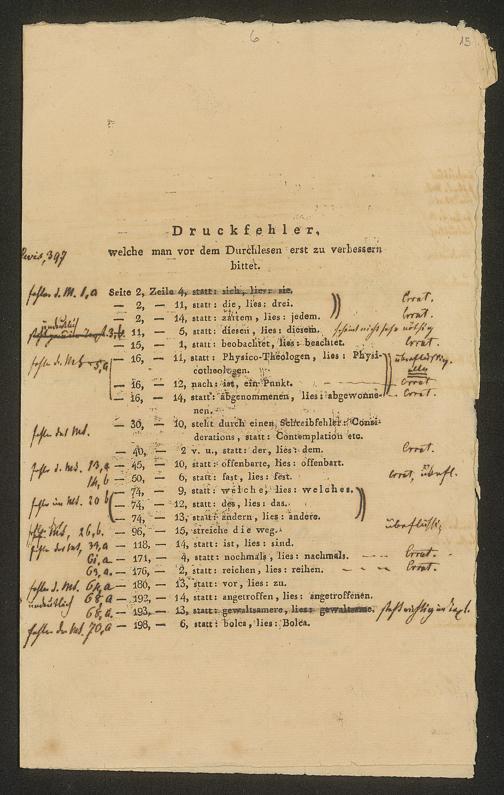 6
15
Druckfehler,
welche man vor dem Durchlesen erst zu verbessern
bittet.
397
fehler d. M. 1, a Seite 2, Zeile 4, statt: sich, lies: sie.
— 2, — 11, statt: die, lies: drei. Corrat.
— 2, — 14, statt: zartem, lies: jedem. Corrat.
3, b. 11, — 5, statt: diesen, lies: diesem. scheint nicht sehr nöthig
— 15, — 1, statt: beobachtet, lies: beachtet. Corrat.
fehler d. M. 5, a — 16, — 11, statt: Physico-Theologen, lies: Physi- überflüssig
cotheologen.
— 16, — 12, nach: ist, ein Punkt. Corrat.
— 16, — 14, statt: abgenommenen, lies: abgewonne- Corrat.
nen.
fehler des Ms. — 30, — 10, steht durch einen Schreibfehler: Consi-
derations, statt: Contemplation etc.
— 40, — 2 v. u., statt: der, lies: dem. Corrat.
fehler d. Ms. 13, a — 45, — 10, statt: offenbarte, lies: offenbart.
14, b — 50, — 6, statt: fast, lies: fest. Corrat, überfl.
— 74, — 9, statt: welche, lies: welches.
fehler im Ms. 20 b — 74, — 12, statt: des, lies: das.
— 74, — 13, statt: andern, lies: andere.
Ms, 26, b. — 96, — 15, streiche die weg. überflüssig
— 118, — 14, statt: ist, lies: sind.
61, a — 171, — 4, statt: nochmals, lies: nachmals. Corrat.
63, a. — 176, — 2, statt: reichen, lies: reihen. Corrat.
fehler d. Mt. 64, a — 186, — 13, statt: vor, lies: zu.
undeutlich 68, a — 192, — 14, statt: angetroffen, lies: angetroffenen.
68, a. — 193, — 13, statt: gewaltsamere, lies: gewaltsame. steht richtig im Text.
fehler des Ms. 70, a — 198, — 6, statt: bolca, lies: Bolca.